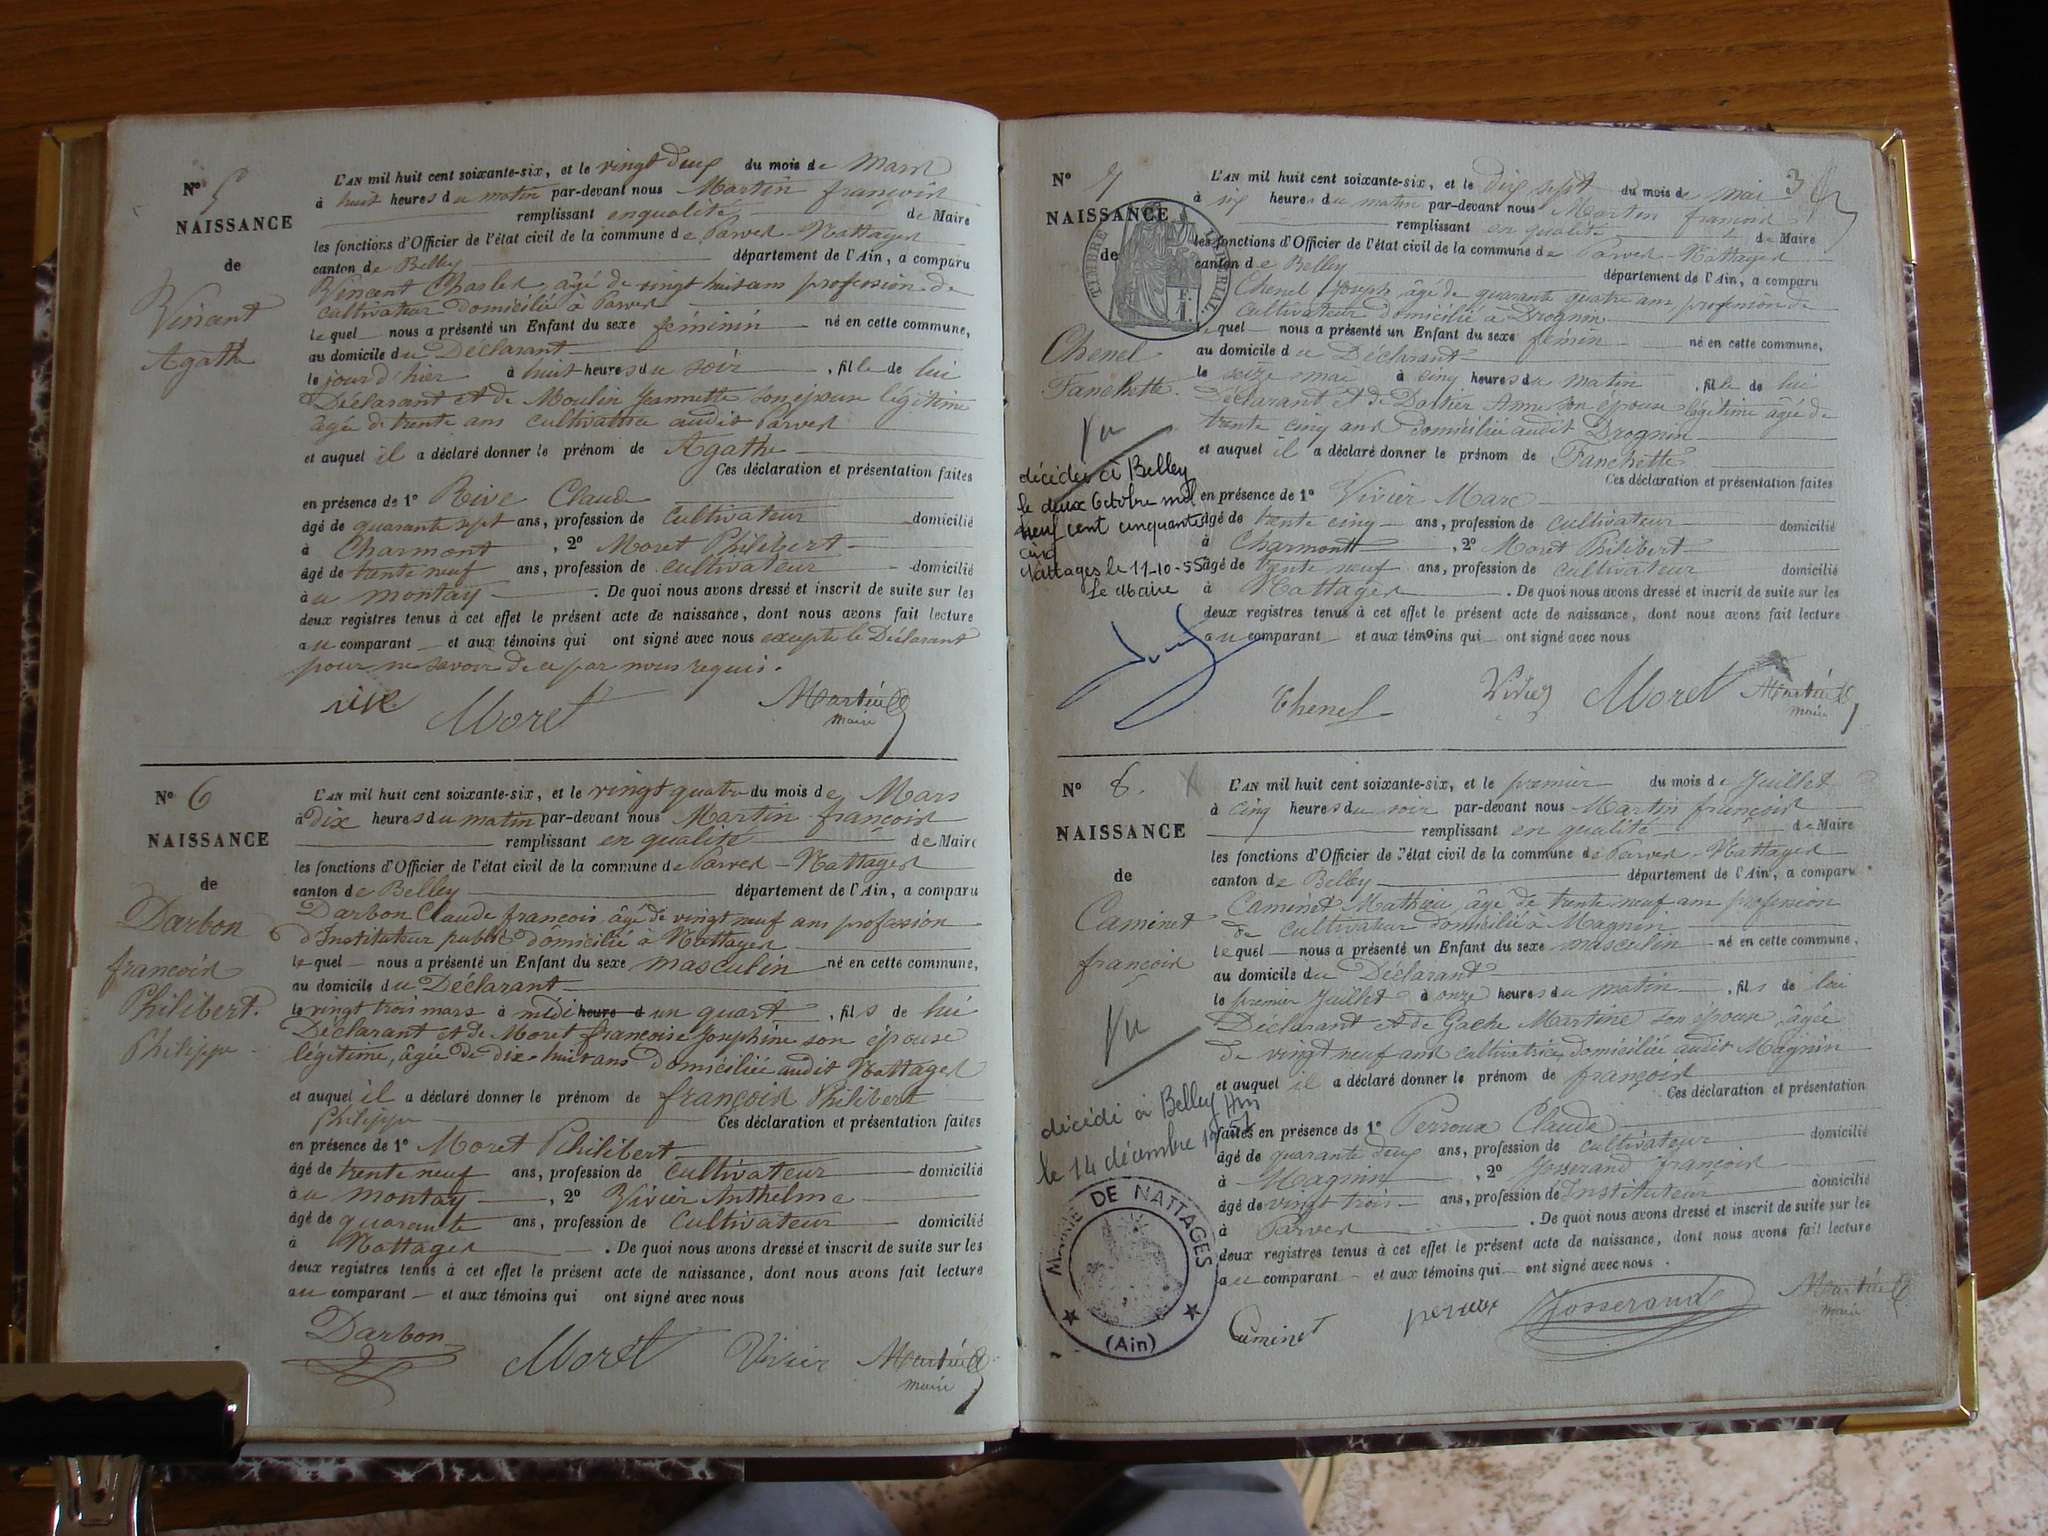 N° 5
NAISSANCE
de
Vincent
Agathe
L'AN mil huit cent soixante-six, et le vingt deux du mois de Mars
à huit heures du matin par-devant nous Martin françois
remplissant en qualité de Maire
les fonctions d'Officier de l'état civil de la commune de Parves-Nattages
canton de Belley département de l'Ain, a comparu
Vincent Charles, âgé de vingt huit ans profession de
cultivateur domicilié à Parves
lequel nous a présenté un Enfant du sexe féminin né en cette commune,
au domicile du Déclarant
le jour d'hier à huit heures du soir, fille de lui
Déclarant et de Moulin Jeannette son épouse légitime
âgé de trente ans cultivatrice audit Parves
et auquel il a déclaré donner le prénom de Agathe
Ces déclaration et présentation faites
en présence de 1° Rive Claude
âgé de quarante sept ans, profession de cultivateur domicilié
à Charmont, 2° Moret Philibert
âgé de trente neuf ans, profession de cultivateur domicilié
au montay. De quoi nous avons dressé et inscrit de suite sur les
deux registres tenus à cet effet le présent acte de naissance, dont nous avons fait lecture
au comparant et aux témoins qui ont signé avec nous excepté le Déclarant
pour ne savoir de ce par nous requis.
rive Moret Martin
maire
N° 6
NAISSANCE
de
Darbon
françois
Philibert
Philippe
L'AN mil huit cent soixante-six, et le vingt quatre du mois de Mars
à dix heures du matin par-devant nous Martin françois
remplissant en qualité de Maire
les fonctions d'Officier de l'état civil de la commune de Parves-Nattages
canton de Belley département de l'Ain, a comparu
Darbon Claude françois, âgé de vingt neuf ans profession
d'Instituteur public domicilié à Nattages
lequel nous a présenté un Enfant du sexe masculin né en cette commune,
au domicile du Déclarant
le vingt trois mars à midi heure d un quart, fils de lui
Déclarant et de Moret françoise Joséphine son épouse
légitime, âgée de dix-huit ans domiciliée audit Nattages
et auquel il a déclaré donner le prénom de françois Philibert
Philippe Ces déclaration et présentation faites
en présence de 1° Moret Philibert
âgé de trente neuf ans, profession de cultivateur domicilié
au montay, 2° Vivier Anthelme
âgé de quarante ans, profession de Cultivateur domicilié
à Nattages. De quoi nous avons dressé et inscrit de suite sur les
deux registres tenus à cet effet le présent acte de naissance, dont nous avons fait lecture
au comparant et aux témoins qui ont signé avec nous
Darbon Moret Vivier Martin
maire
3
N° 7
NAISSANCE
de
TIMBRE IMPÉRIAL
Chenel
Fanchette
Vu
décédée à Belley
le deux Octobre mil
neuf cent cinquante
cinq
Nattages le 11-10-55
Le Maire
L'AN mil huit cent soixante-six, et le dix sept du mois de mai
à six heures du matin par-devant nous Martin françois
remplissant en qualité de Maire
les fonctions d'Officier de l'état civil de la commune de Parves-Nattages
canton de Belley département de l'Ain, a comparu
Chenel Joseph âgé de quarante quatre ans, profession de
cultivateur domicilié à Drognin
lequel nous a présenté un Enfant du sexe fémin né en cette commune,
au domicile du Déclarant
le seize mai à cinq heures du matin, fille de lui
Déclarant et de Anne son épouse légitime âgée de
trente cinq ans domiciliée audit Drognin
et auquel il a déclaré donner le prénom de Fanchette
Ces déclaration et présentation faites
en présence de 1° Vivier Marc
âgé de trente cinq ans, profession de cultivateur domicilié
à Charmontt, 2° Moret Philibert
âgé de trente neuf ans, profession de cultivateur domicilié
à Nattages. De quoi nous avons dressé et inscrit de suite sur les
deux registres tenus à cet effet le présent acte de naissance, dont nous avons fait lecture
au comparant et aux témoins qui ont signé avec nous
Chenel Vivier Moret Martin
maire
N° 8.
NAISSANCE
de
Caminet
françois
Vu
décédé à Belley Ain
le 14 décembre
MAIRIE DE NATTAGES
(Ain)
L'AN mil huit cent soixante-six, et le premier du mois de Juillet
à cinq heures du soir par-devant nous Martin françois
remplissant en qualité de Maire
les fonctions d'Officier de l'état civil de la commune de Parves-Nattages
canton de Belley département de l'Ain, a comparu
Caminet Mathieu, âgé de trente neuf ans profession
de cultivateur domicilié à Magnin
lequel nous a présenté un Enfant du sexe masculin né en cette commune,
au domicile du Déclarant
le premier Juillet à onze heures du matin, fils de lui
Déclarant et de Gache Martine son épouse, âgée
de vingt neuf ans cultivatrice domiciliée audit Magnin
et auquel il a déclaré donner le prénom de françois
Ces déclaration et présentation
faites en présence de 1° Perroux Claude
âgé de quarante deux ans, profession de cultivateur domicilié
à Magnin, 2° Josserand françois
âgé de vingt trois ans, profession de Instituteur domicilié
à Parves. De quoi nous avons dressé et inscrit de suite sur les
deux registres tenus à cet effet le présent acte de naissance, dont nous avons fait lecture
au comparant et aux témoins qui ont signé avec nous.
Caminet peroux Josserand Martin
maire